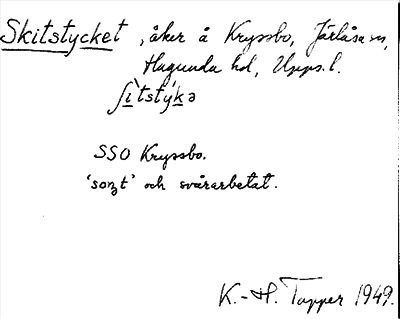 Skitstycket, åker å Kryssbo, Järlåsa sn,
Hagunda hd, Upps. l.
ʃìtstýkə
SSO Kryssbo.
'soŋt' och svårarbetat.
K.-H. Tapper 1949.